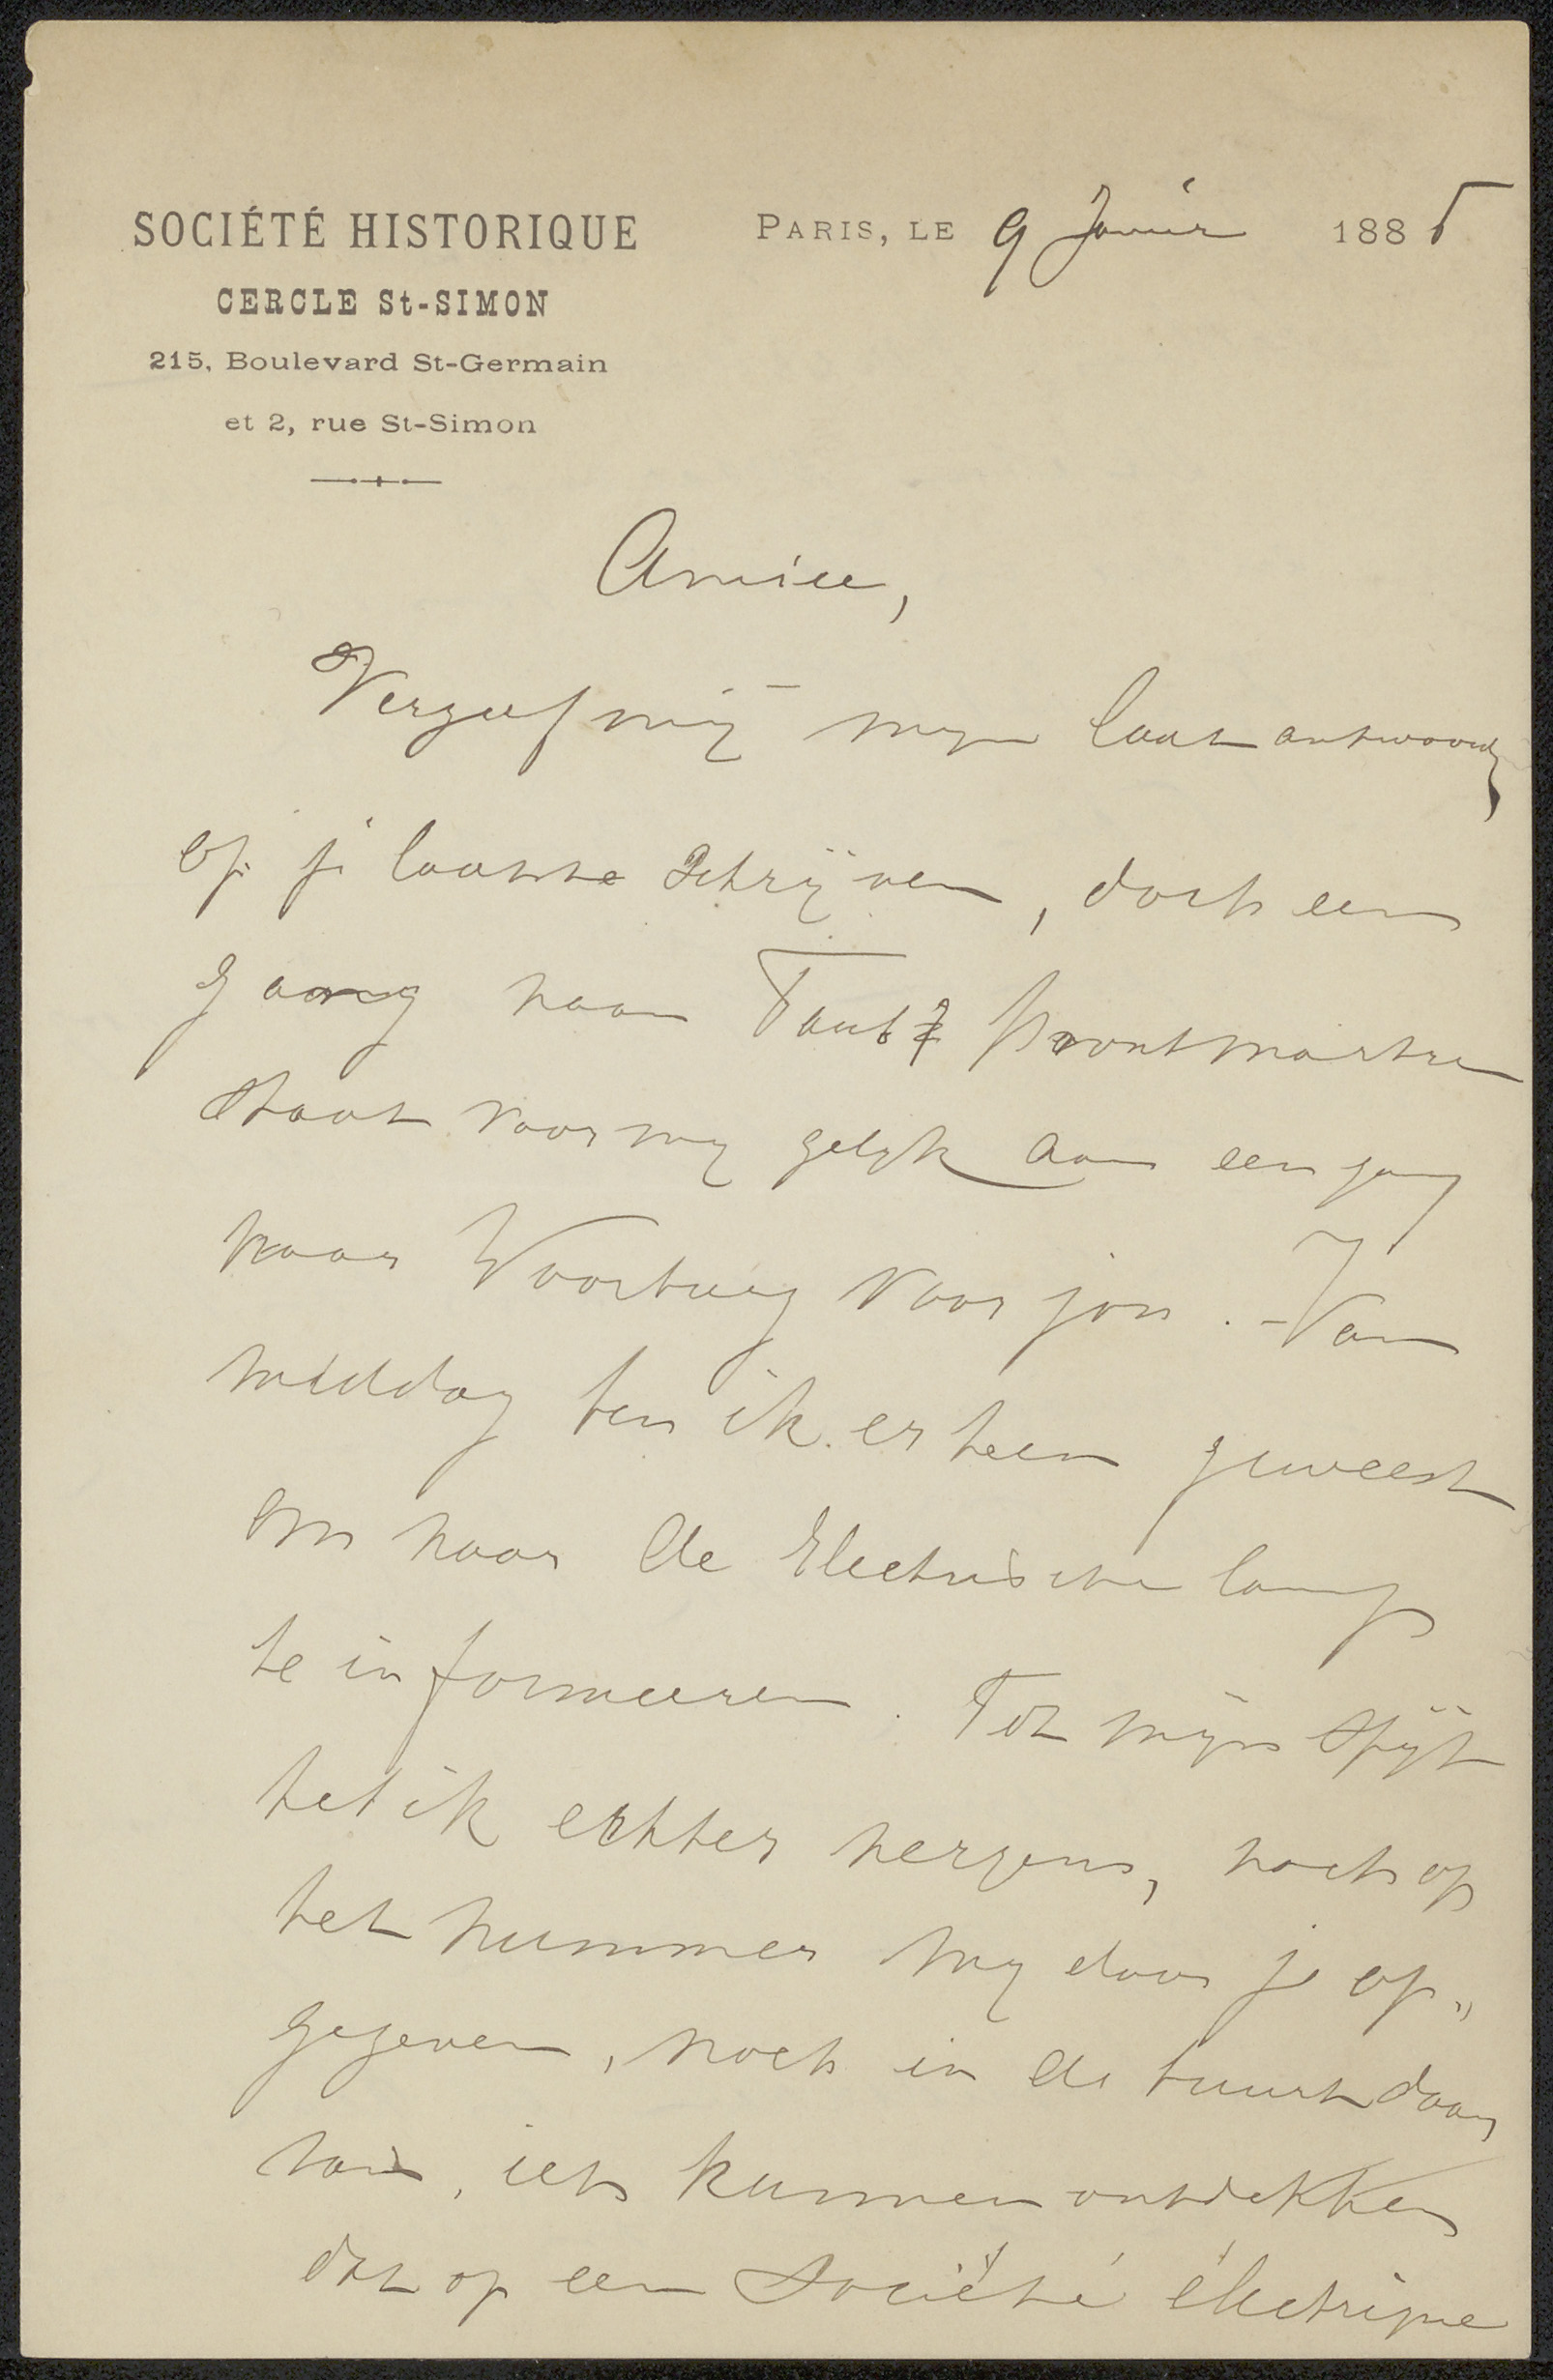 SOCIÉTÉ HISTORIQUE
CERCLE St-SIMON
215, Boulevard St-Germain
et 2, rue St-Simon
PARIS, LE 9 Janvier 1885
Amice,
Vergeef mij mijn laat antwoord
op je laatste schrijven, doch een
gang naar Faub. Montmartre
staat voor mij gelijk aan een gang
naar Voorburg voor jou. - Van
middag ben ik er heen geweest
om naar de Electrische lamp
te informeeren. Tot mijn spijt
heb ik echter nergens, noch op
het nummer mij door je op„
gegeven, noch in de buurt daar
van, iets kunnen ontdekken
dat op een Société électrique